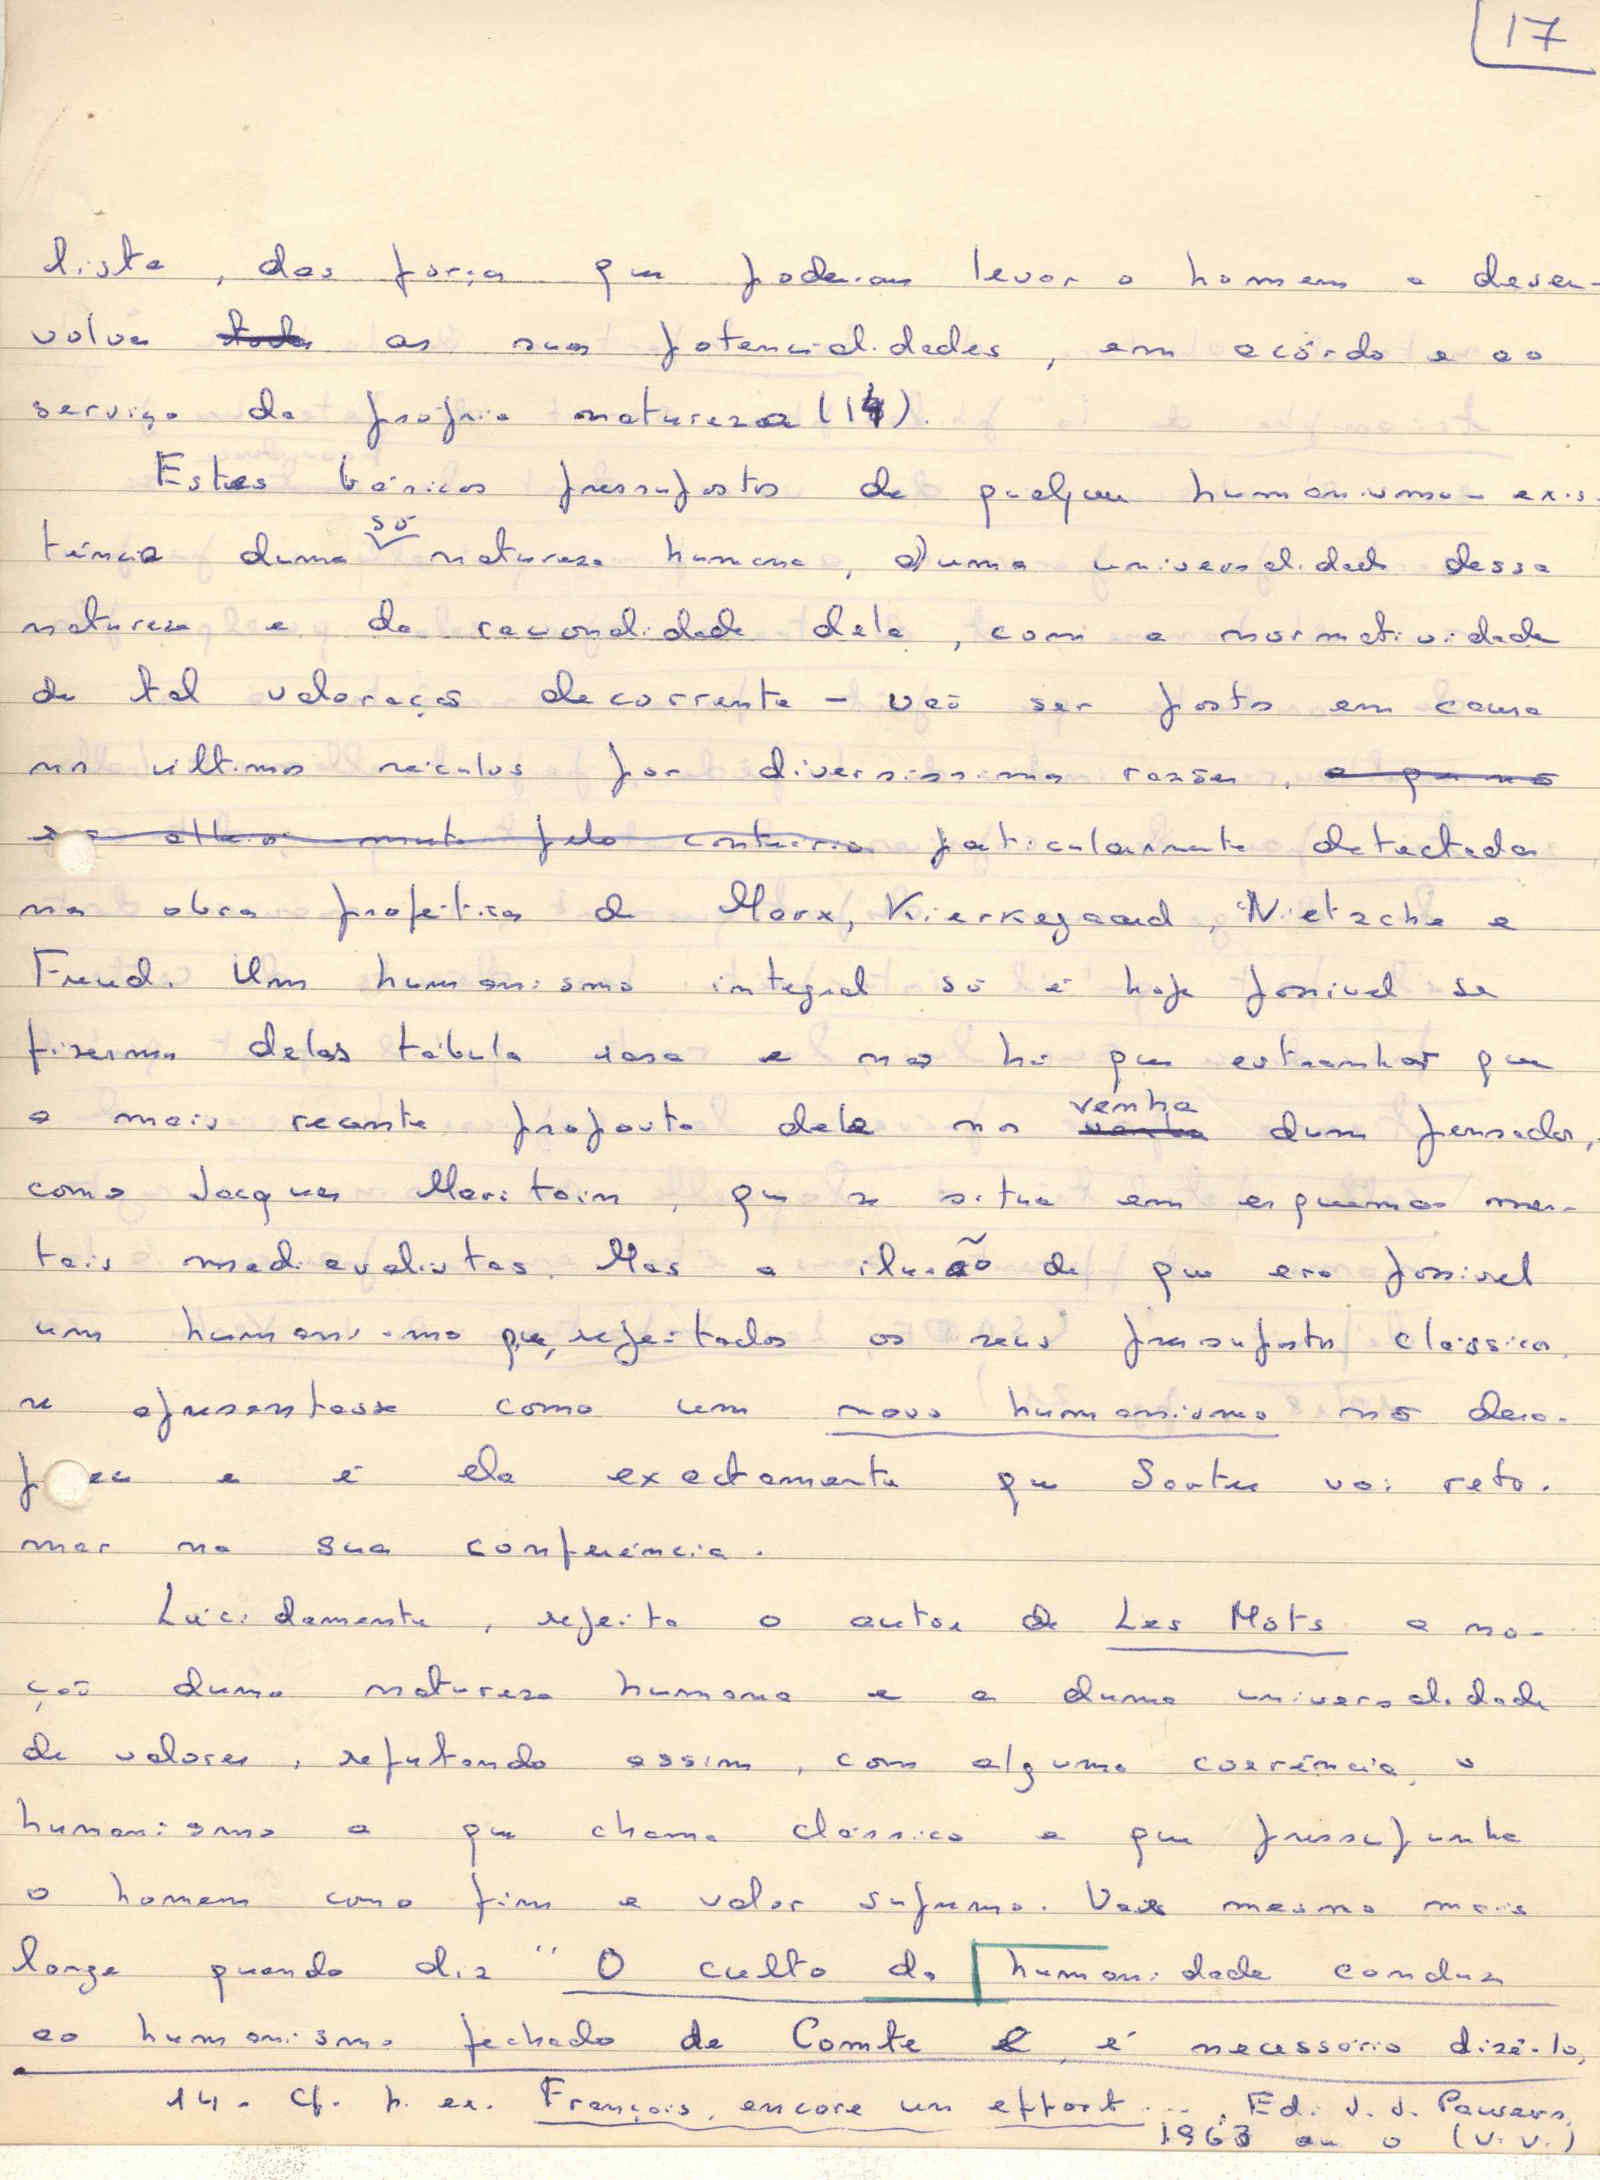 17
lista, das força que poderiam levar o homem a desen-
volver todas as suas potencialidades, em acôrdo e ao
serviço da própria natureza (14).
Estes básicos pressupostos de qualquer humanismo - exis-
só
tência duma natureza humana, duma universalidade dessa
natureza e da racionalidade dela, com a normatividade
de tal valoração decorrente - vão ser postos em causa
nos últimos séculos por diversissimas razões, e que não
é alheio muito pelo contrário particularmente detectadas
na obra profética de Marx, Kierkegaard, Nietzche e
Freud. Um humanismo integral só é hoje possivel se
fizermos delas tábula rasa e não há que estranhar que
venha
a mais recente proposta dele nos venha dum pensador,
como Jacques Maritain, que se situa em esquemas men-
tais medievalistas. Mas a ilusão de que era possivel
um humanismo que, rejeitados os seus pressupostos clássicos,
se apresentasse como um novo humanismo não desa-
pareceu e é ela exactamente que Sartre vai reto-
mar na sua conferência.
Lúcidamente, rejeita o autor de Les Mots a no-
ção duma natureza humana e a duma universalidade
de valores, refutando assim, com alguma coerência, o
humanismo a que chama clássico e que pressupunha
o homem como fim e valor supremo. Vai mesmo mais
longe quando diz "O culto da humanidade conduz
ao humanismo fechado de Comte e, é necessário dizê-lo,
14. Cf. p. ex. Français, encore un effort.... Ed. J. J. Pauvers,
1963 ou o (V. V.)